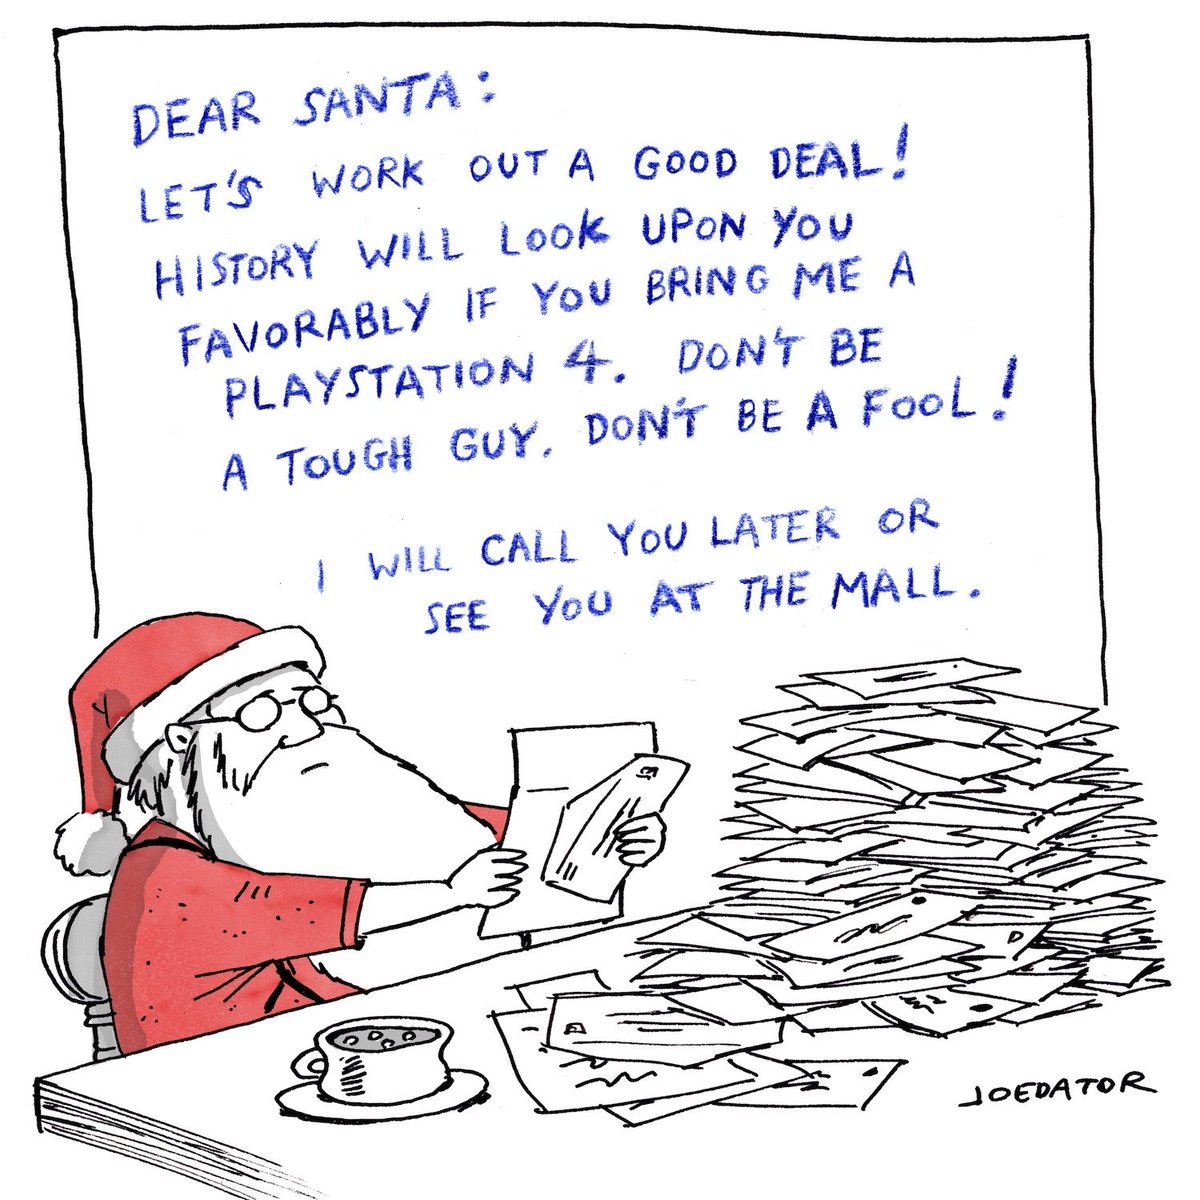 DEAR SANTA:
LET'S WORK OUT A GOOD DEAL!
HISTORY WILL LOOK UPON YOU
FAVORABLY IF YOU BRING ME A
PLAYSTATION 4. DON'T BE
A TOUGH GUY. DON'T BE A FOOL!
I WILL CALL YOU LATER OR
SEE YOU AT THE MALL.
JOEDATOR